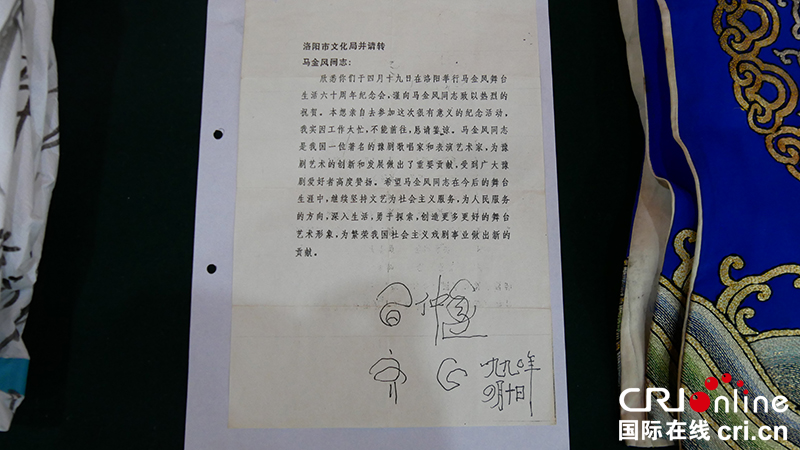 洛阳市文化局并请转
马金凤同志:
欣悉你们于四月十九日在洛阳举行马金凤舞台
生活六十周年纪念会,谨向马金凤同志致以热烈的
祝贺。本想亲自去参加这次张有意义的纪念活动,
我实因工作大忙,不能前往,恳请鉴谅。马金凤同志
是我国一位著名的豫剧歌唱家和表演艺术家,为豫
剧艺术的创新和发展做出了重要贡献,受到广大豫
剧爱好者高度赞扬。希望马金凤同志在今后的舞台
生涯中,继续坚持文艺为社会主义服务,为人民服务
的方向,深入生活,勇于探索,创造更多更好的舞台
艺术形象,为繁荣我国社会主义戏剧事业做出新的
贡献。
仲
一九九〇年
四月十日
CRI online
国际在线 cri.cn